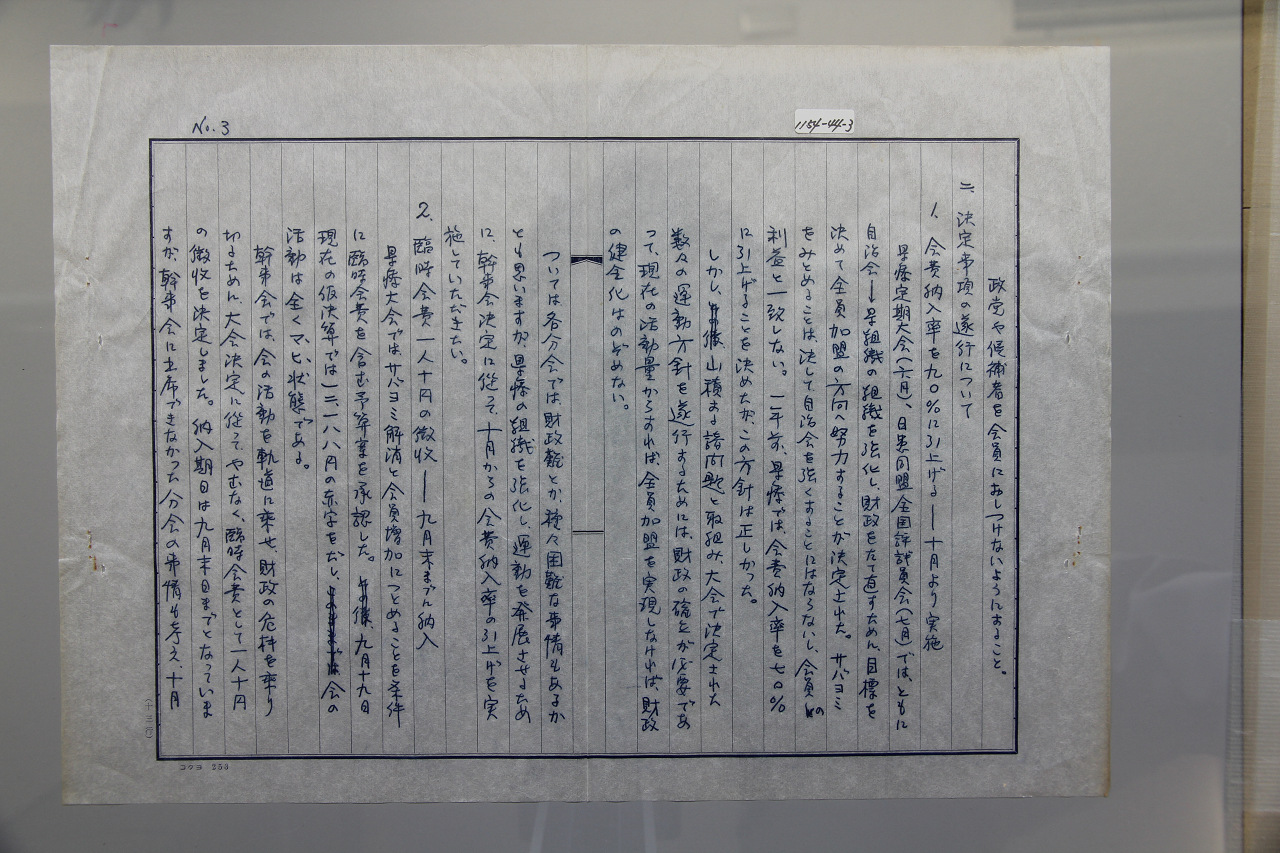 No. 3
1154-44-3
政党や候補者を会員におしつけないようにすること。
二、決定事項の遂行について
1、会費納入率を九〇%に引上げる——十月より実施
県療定期大会(六月)、日患同盟全国評議員会(七月)では、ともに
自治会—県組織の組織を強化し、財政をたて直すために、目標を
決めて全員加盟の方向へ努力することが決定された。サバヨミ
をみとめることは、決して自治会を強くすることにはならないし、会員の
利益と一致しない。二年前、県療では、会費納入率を七〇%
に引上げることを決めたが、この方針は正しかった。
しかし、山積する諸問題と取組み、大会で決定された
数々の運動方針を遂行するためには、財政の確立が必要であ
って、現在の活動量からすれば、全員加盟を実現しなければ、財政
の健全化はのぞめない。
ついては各分会では、財政難とか、種々困難な事情もあるか
とも思いますが、県療の組織を強化し、運動を発展させるため
に、幹事会決定に従って、十月からの会費納入率の引上げを実
施していただきたい。
2、臨時会費一人十円の徴収——九月末までに納入
県療大会では、サバヨミ解消と会員増加につとめることを条件
に臨時会費を含む予算案を承認した。その後、九月十九日
現在の仮決算では一三、一八八円の赤字をだし、会の
活動は全くマヒ状態である。
幹事会では、会の活動を軌道に乗せ、財政の危機を乗り
切るために、大会決定に従って、やむなく、臨時会費として一人十円
の徴収を決定しました。納入期日は九月末日までとなっていま
すが、幹事会に出席できなかった分会の事情も考え、十月
(十三行)
コクヨ 253